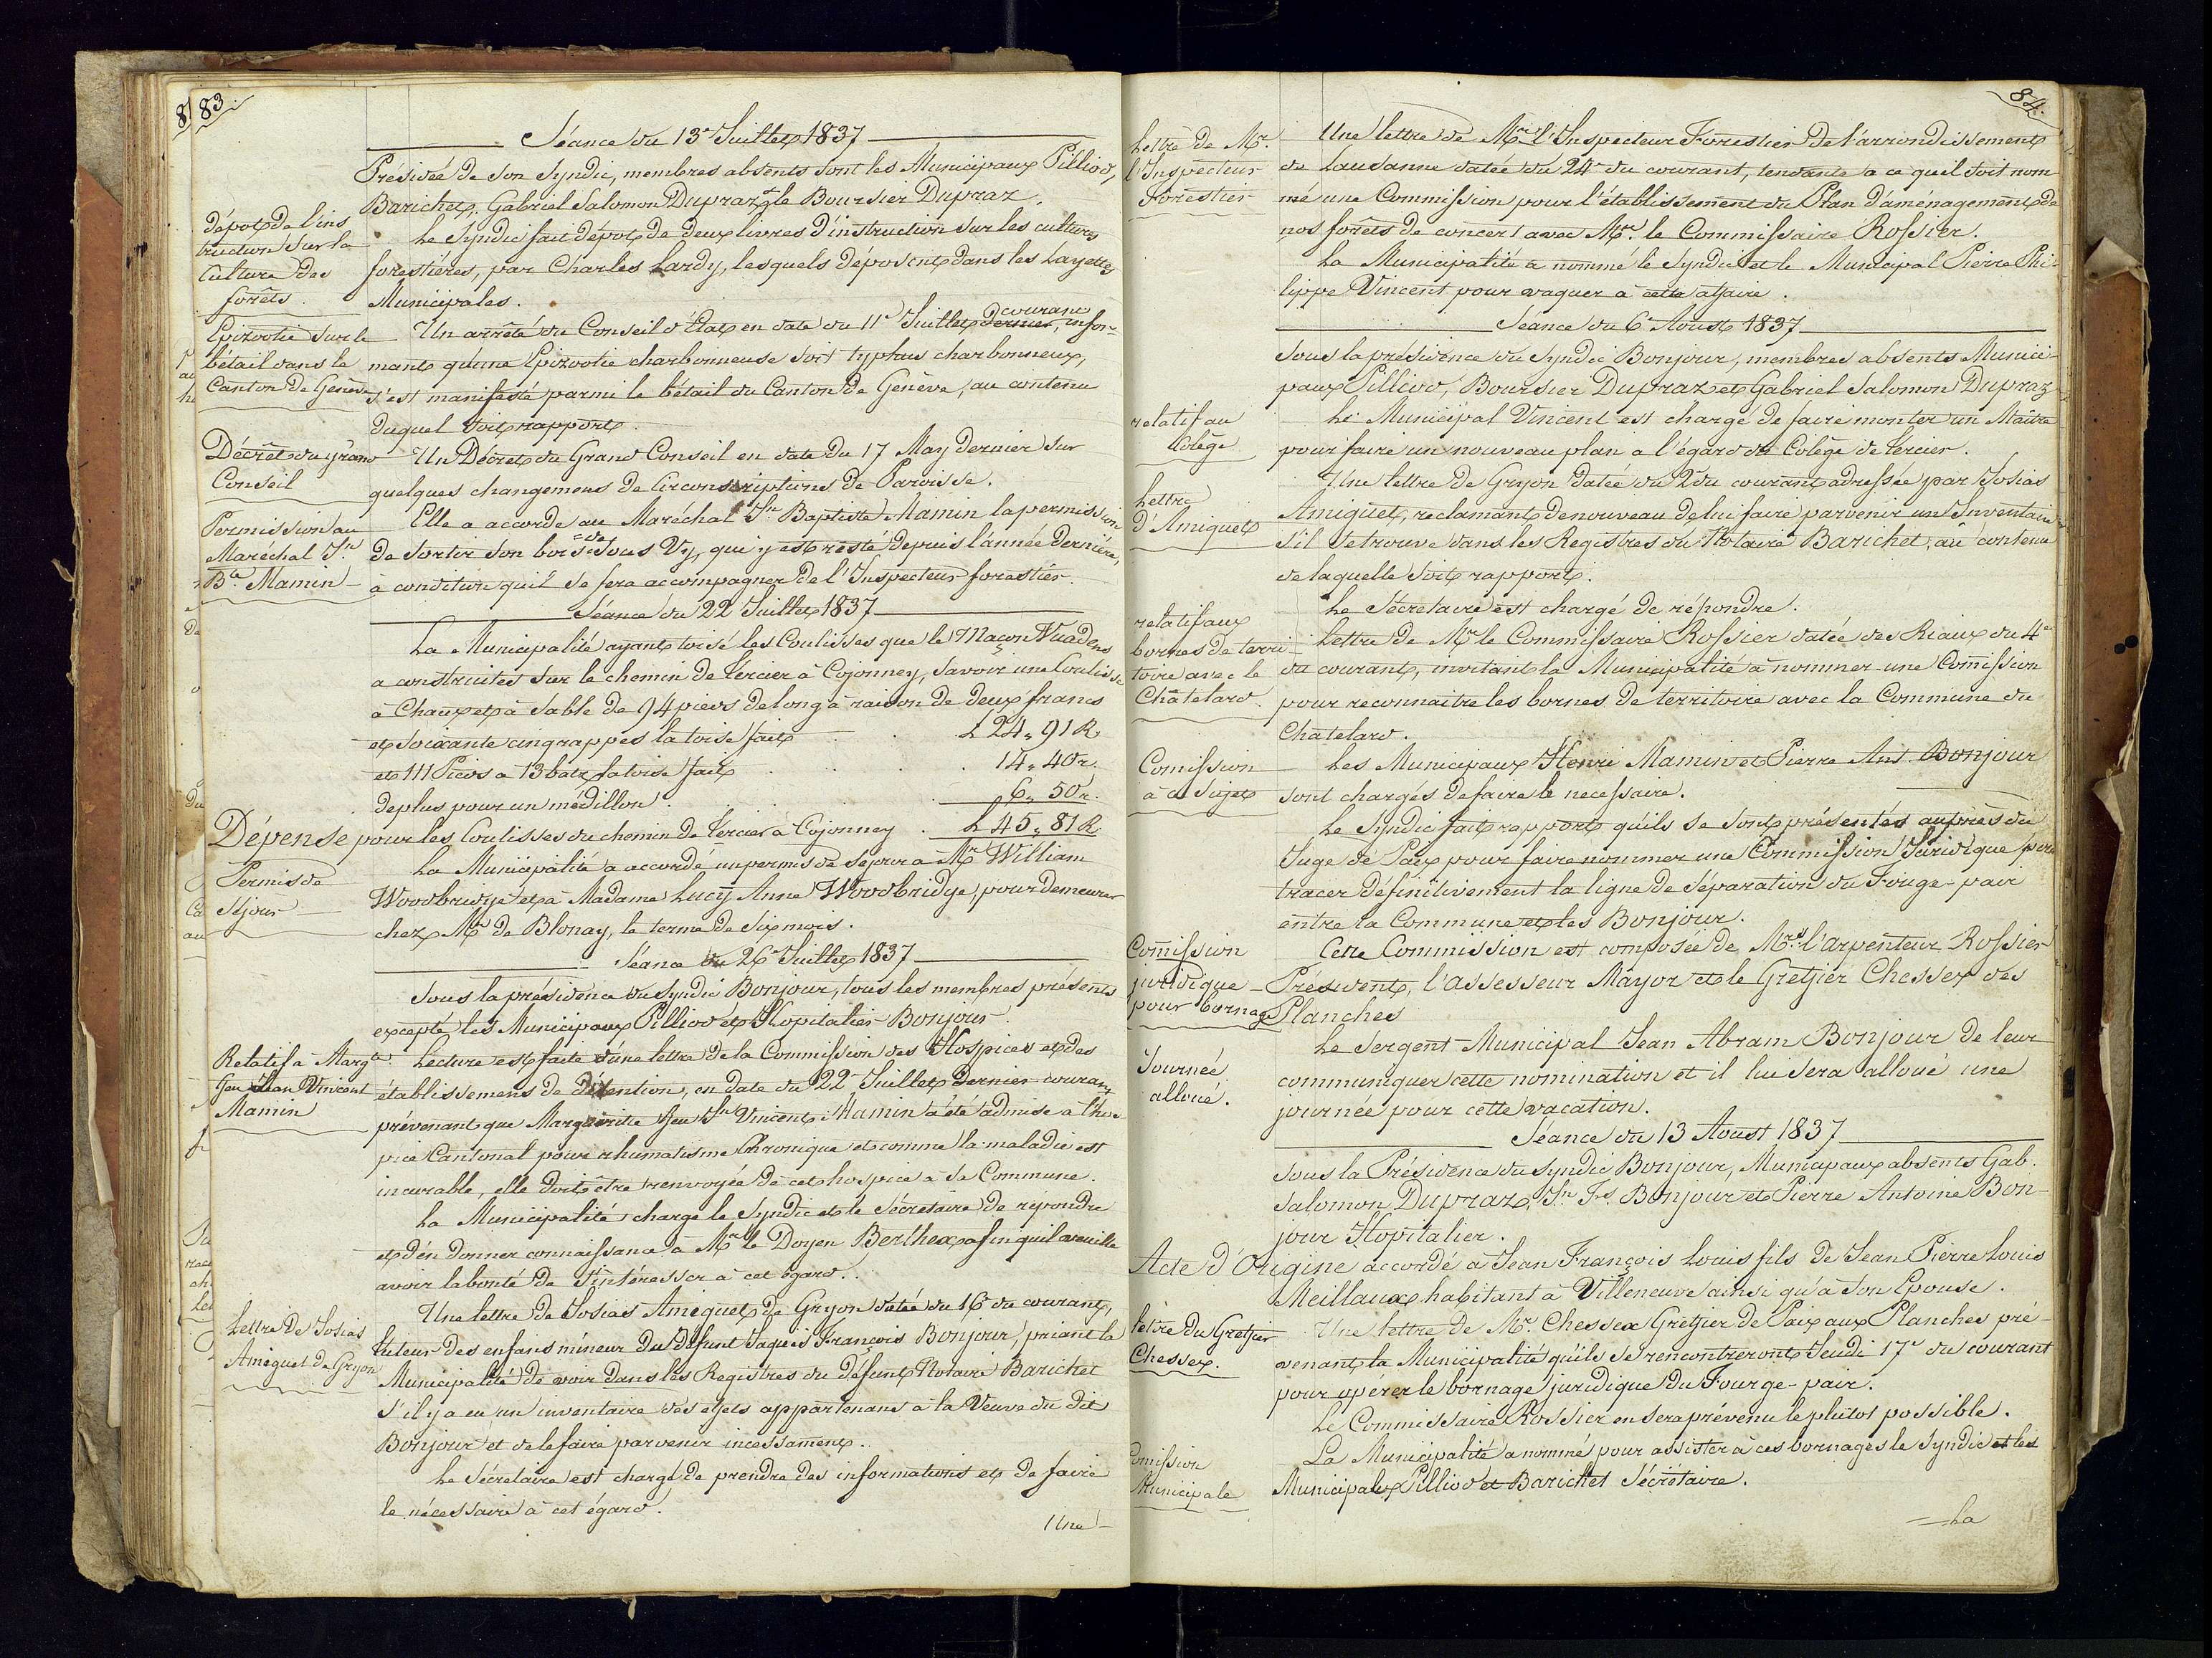 83.
Séance du 13e Juillet 1837
Présidée de son Syndic, membres absents sont les Municipaux Pilliod,
Barichet, Gabriel Salomon Dupraz et le Boursier Dupraz.
dépot de l'ins
truction sur la
Culture des
forêts.
Le Syndic fait dépot de deux livres d'instruction sur les cultures
forestières, par Charles Lardy, lesquels déposent dans les Layettes
Municipales.
Epizootie sur le
bétail dans le
Canton de Genève
Un arrêté du Conseil d'Etat en date du 11e Juillet dernier, courant infor-
mant qu'une Epizootie charbonneuse soit typhus charbonneux,
s'est manifesté parmi le bétail du Canton de Genève, au contenu
duquel soit rapport.
Décret du Grand
Conseil
Un Décret du Grand Conseil en date du 17 May dernier sur
quelques changemens de Circonscriptions de Paroisse.
Permission au
Maréchal Jn
Bte Mamin
Elle a accordé au Maréchal Jn Baptiste Mamin la permission
de sortir son bois de sous Vy, qui y est resté depuis l'année dernière,
a condition qu'il se fera accompagner de l'Inspecteur forestier.
Séance du 22 Juillet 1837
La Municipalité ayant toisé les Coulisses que le Maçon Vuadens
a construites sur le chemin de Tercier à Cojonney, savoir une Coulisse
à Chaux et à sable de 94 pieds de long à raison de deux francs
et soixante cinq rappes la toise fait . . L 24 „ 91 R
et 111 Pieds a 13 batz la toise fait . . . . 14 „ 40 r.
de plus pour un médillon . . . 6 „ 50 r.
Dépense pour les Coulisses du chemin de Tercier à Cojonney . L 45 „ 81 R
Permis de
Séjour
La Municipalité a accordé un permis de séjour a Mr William
Woodbridge et à Madame Lucy Anne Woodbridge, pour demeurer
chez Mr de Blonay, le terme de six mois.
Séance du 26e Juillet 1837
Sous la présidence du Syndic Bonjour, tous les membres présents
excepté les Municipaux Pilliod et Hopitalier Bonjour.
Relatif à Margte
feu Jean Vincent
Mamin
Lecture est faite d'une lettre de la Commission des Hospices et des
établissemens de détention, en date du 22e Juillet dernier courant
prévenant que Marguerite feu Jn Vincent Mamin a été admise à l'hos
pice Cantonal pour rhumatisme Chronique et comme la maladie est
incurable, elle doit être renvoyée de cet hospice à sa Commune.
La Municipalité charge le Syndic et le Sécrétaire de répondre
et d'en donner connaissance à Mr le Doyen Berthex afin qu'il veuille
avoir la bonté de s'intéresser à cet égard.
Lettre de Josias
Amiguet de Gryon
Une lettre de Josias Amiguet de Gryon datée du 16e du courant,
tuteur des enfans mineur du défunt Jaques François Bonjour, priant la
Municipalité de voir dans les Registres du défunt Notaire Barichet
s'il y a eu un inventaire des effets appartenans à la Veuve du dit
Bonjour et de le faire parvenir incessament.
Le Sécretaire est chargé de prendre des informations et de faire
le nécessaire à cet égard.
Une
84.
Lettre de Mr.
l'Inspecteur
Forestier
Une lettre de Mr l'Inspecteur Forestier de l'arrondissement
de Lausanne datée du 24e du courant, tendante a ce qu'il soit nom
mé une Commission pour l'établissement du Plan d'aménagement de
nos forêts de concert avec Mr. le Commissaire Rossier.
La Municipalité a nommé le Syndic et le Municipal Pierre Phi-
lippe Vincent pour vaquer à cette affaire.
Séance du 6e Aoust 1837
Sous la présidence du Syndic Bonjour, membres absents Munici-
paux Pilliod, Boursier Dupraz et Gabriel Salomon Dupraz
relatif au
Colège
Le Municipal Vincent est chargé de faire monter un Maître
pour faire un nouveau plan a l'égard du Colège de Tercier.
Lettre
d'Amiguet
Une lettre de Gryon datée du 2 du courant adressée par Josias
Amiguet, reclamant de nouveau de lui faire parvenir un Inventaire
s'il se trouve dans les Registres du Notaire Barichet, au contenu
de laquelle soit rapport.
Le Sécretaire est chargé de répondre.
relatif aux
bornes de terri-
toire avec le
Châtelard
Lettre de Mr le Commissaire Rossier datée des Riaux du 4e
du courant, invitant la Municipalité à nommer une Comission
pour reconnaitre les bornes de territoire avec la Commune du
Chatelard.
Comission
à ce Sujet
Les Municipaux Henri Mamin et Pierre Ant. Bonjour
sont chargés de faire le necessaire.
Le Syndic fait rapport qu'ils se sont présentés auprès du
Juge de Paix pour faire nommer une Commission Juridique pour
tracer définitivement la ligne de séparation du Fouge-pair
entre la Commune et les Bonjour.
Comission
juridique
pour bornage
Cette Commission est composée de Mrs l'arpenteur Rossier
Président, l'assesseur Mayor et le Greffier Chessex des
Planches
Journée
alloué.
Le Sergent Municipal Jean Abram Bonjour de leur
communiquer cette nomination et il lui sera alloué une
journée pour cette vacation.
Séance du 13 Aoust 1837
Sous la Présidence du Syndic Bonjour, Municipaux absents Gab.
Salomon Dupraz, Jn Fs Bonjour et Pierre Antoine Bon-
jour Hopitalier.
Acte d'Origine accordé à Jean François Louis fils de Jean Pierre Louis
Meillaux habitant à Villeneuve ainsi qu'à son Epouse.
lettre du Greffier
Chessex.
Une lettre de Mr. Chessex Greffier de Paix aux Planches pré-
venant la Municipalité qu'ils se rencontreront Jeudi 17e du courant
pour opérer le bornage juridique du Fourge-pair.
Le Commissaire Rossier en sera prévenu le plutot possible.
Comission
Municipale
La Municipalité a nommé pour assister à ces bornages le Syndic et les
Municipaux Pilliod et Barichet Sécrétaire.
La